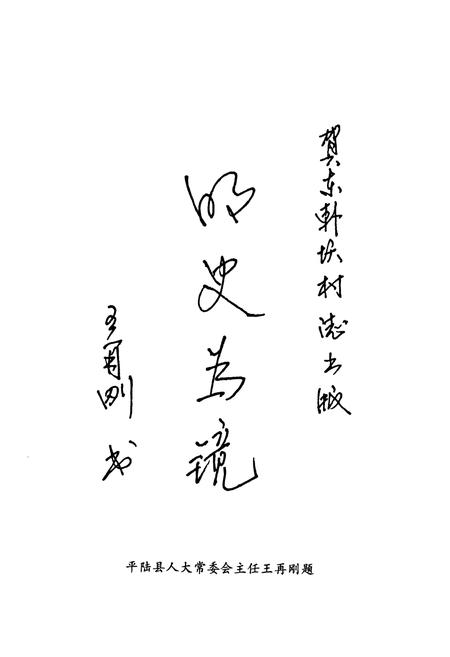 贺东韩村志出版
以史为镜
王再刚 书
平陆县人大常委会主任王再刚题